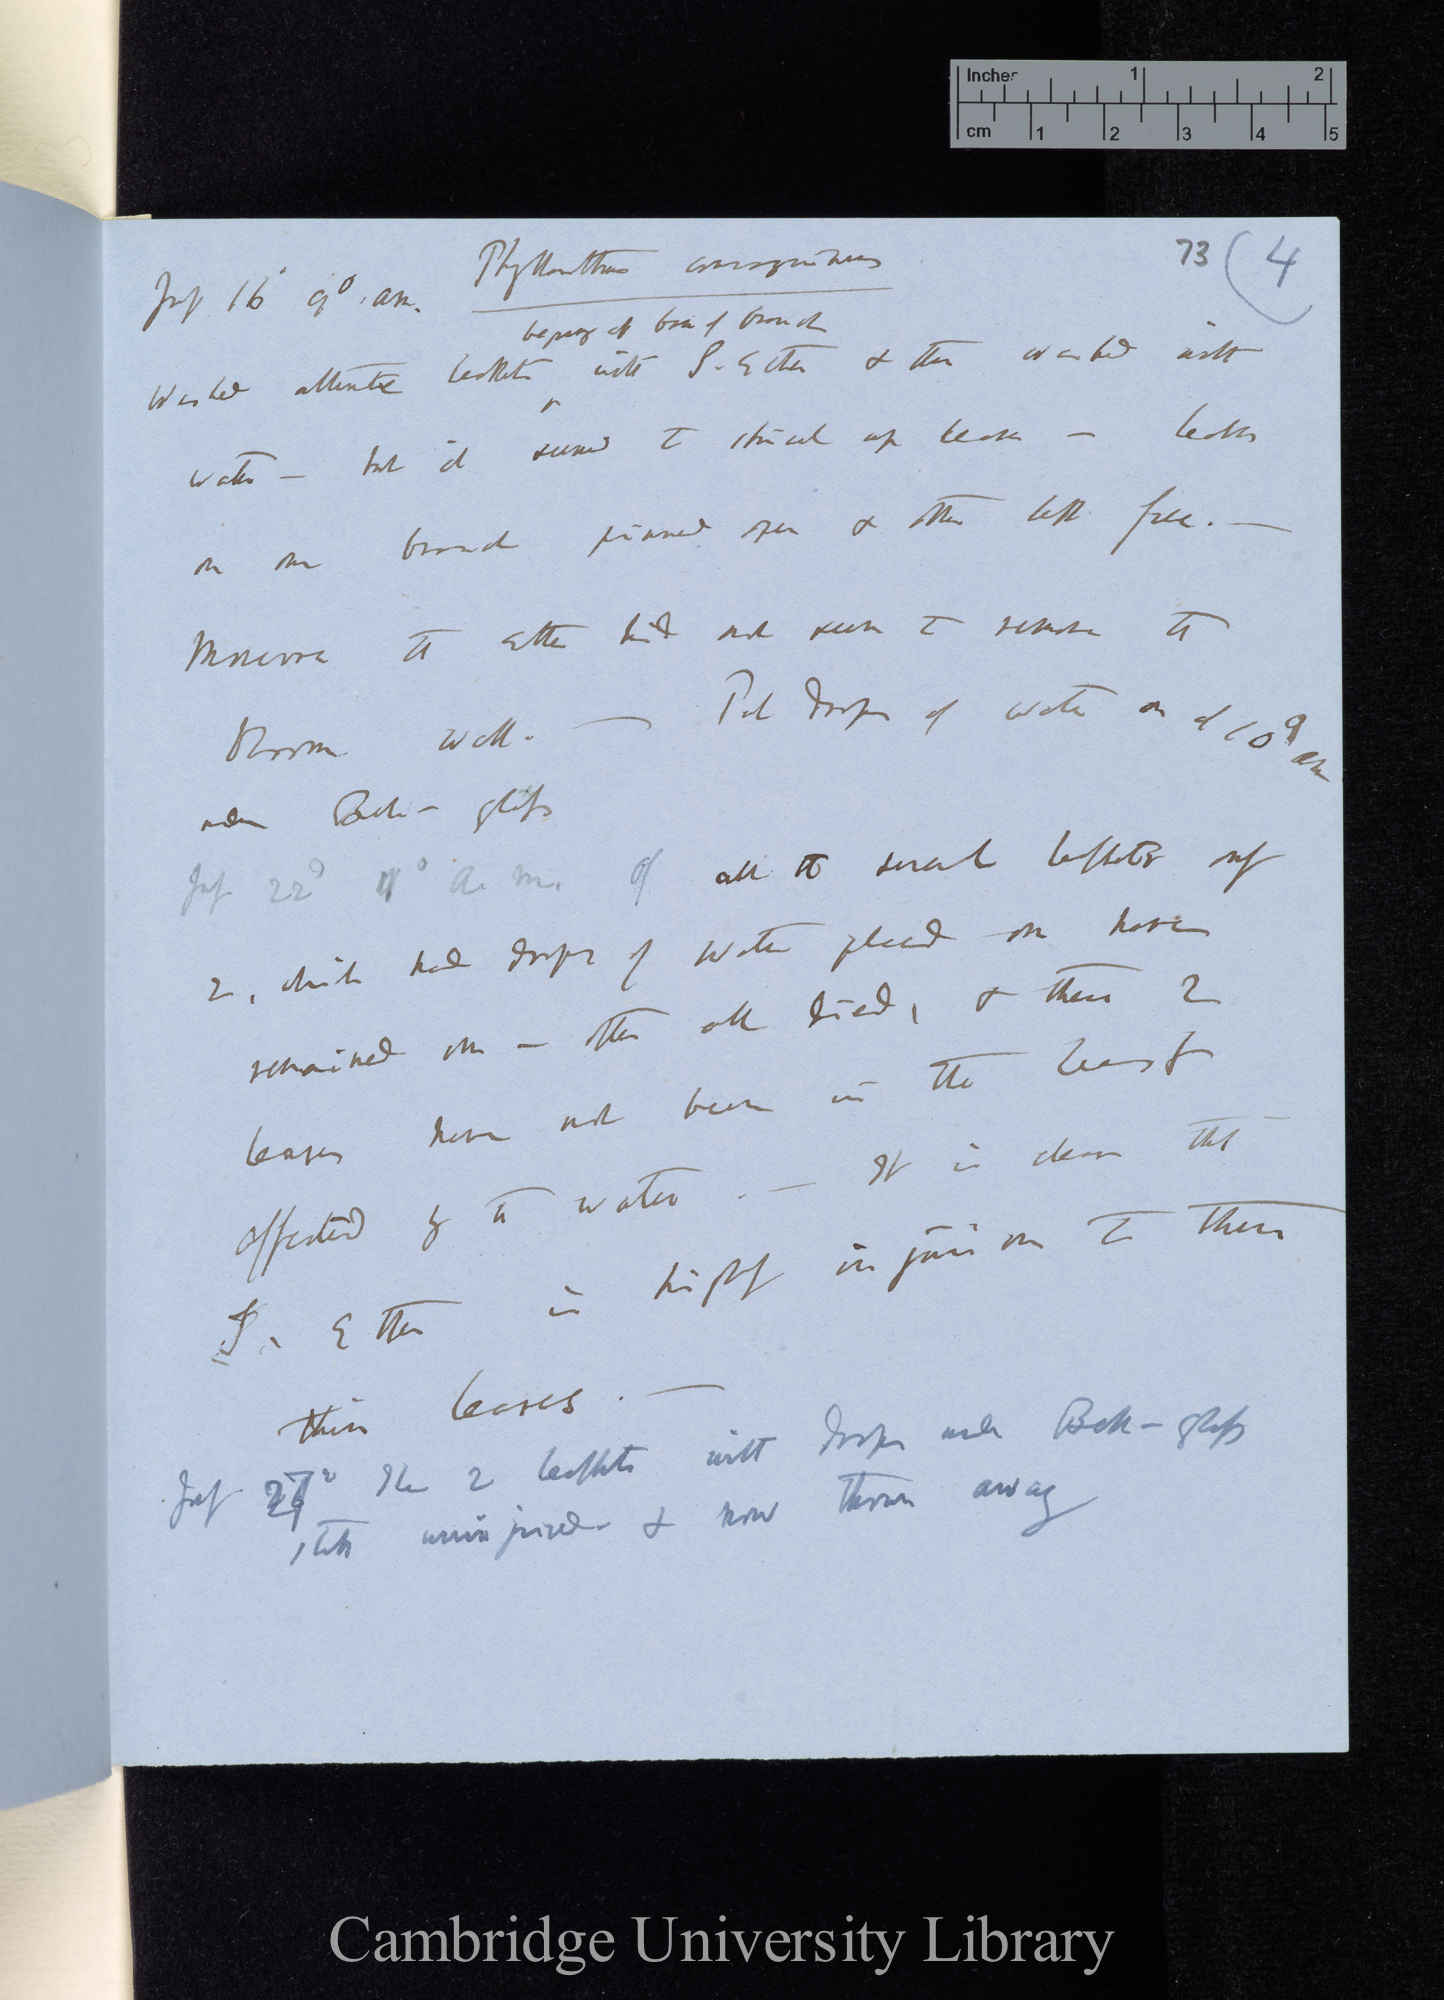 Inches 1 2
cm 1 2 3 4 5
73 (4
July 16° 9° am. Phyllanthus
begining at base of branch
Washed alternate leaflets with S. Ether & then washed with
water — but it seemed to shrivel up leaves — leaves
on one branch pinned open & other left free. —
Moreover the Ether did not seem to remove the
Bloom well. — Put drops of water on at 10° am
under Bell-glass
July 22° a.m. of all the several leaflets only
2, which had drops of water placed on have
remained on — other all died, & these 2
leaves have not been in the least
affected by the water. — It is clear that
S. Ether is highly injurious to these
thin leaves. —
July 27° The 2 leaflets with drops under Bell-glass
quite uninjured & now thrown away
Cambridge University Library